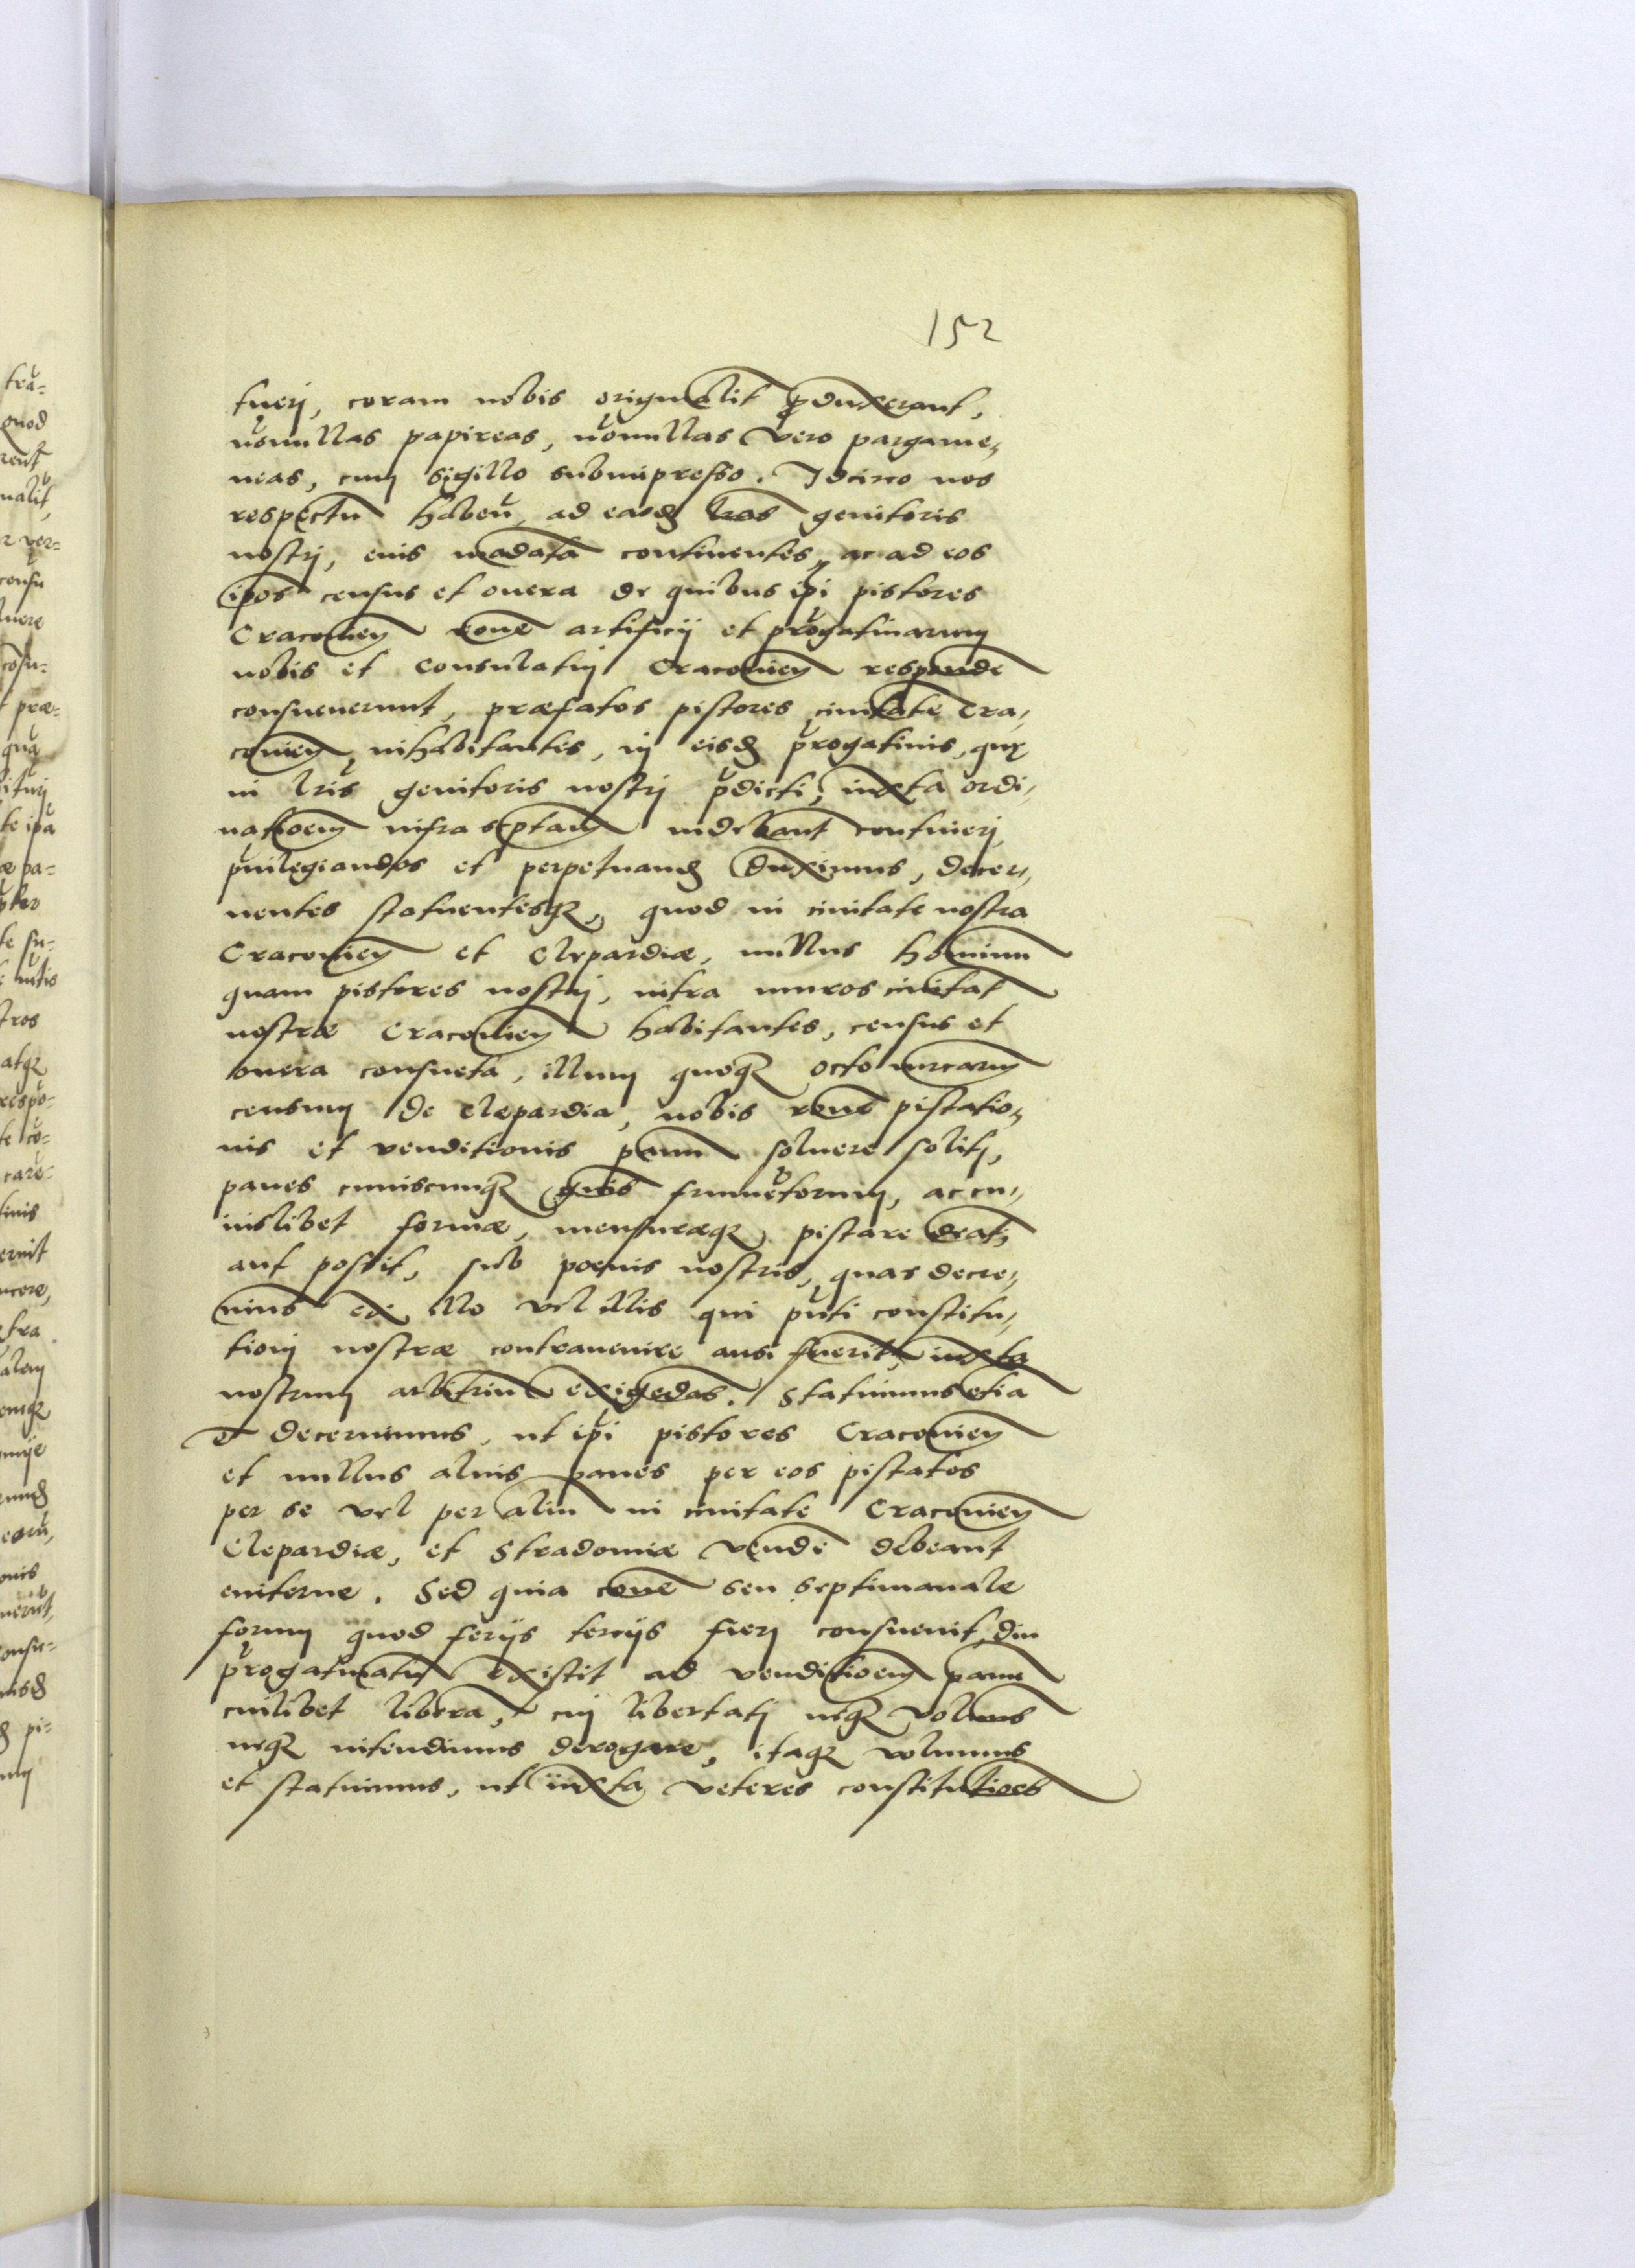 152
tuerj, coram nobis originalit̃ ꝓduxerant,
nõnullas papireas, nõnullas vero pargame,
neas, cum sigillo subimpresso. Idcirco nos
respectũ habeñ, ad easdẽ lr̃as genitoris
nostrj, eius mãdata continentes, ac ad eos
ip̃os census et onera de quibus ip̃i pistores
Cracouieñ rõne artificij et p̃rogatiuarum
nobis et Consulatuj Cracouieñ respondẽ
consueuerunt, præfatos pistores ciuitatẽ Cra,
couieñ, inhabitantes, in eisdẽ p̃rogatiuis, quæ
in lr̃is genitoris nostrj p̃dicti, iuxta ordi,
natioẽm infrascptam videbant̃ contineri,
p̃uilegiandos et perpetuandẽ duximus, decer,
nentes statuentesqꝫ, quod in ciuitate nostra
Cracouieñ et Clepardiæ, nullus hominũ
quam pistores nostrj, intra muros ciuitat̃
nostræ Cracouieñ habitantes, census et
onera consueta, illum quoqꝫ octo mrcarum
censum de Clepardia, nobis rõne pistatio,
nis et venditionis panũ soluere solitj,
panes cuiuscunqꝫ gñis frumẽtorum, ac cu,
iuslibet formæ, mensuræqꝫ pistare debeat,
aut possit, sub poenis nostris, quas decre,
uimus ex illo vel illis qui p̃nti constitu,
tionj nostræ contrauenire ausi fuerit, iuxta
nostrum arbitriũ exigẽdas. Statuimus etiã
et decernimus, ut ip̃i pistores Cracouieñ
et nullus alius panes per eos pistatos
per se vel per aliũ in ciuitate Cracouieñ
Clepardiæ, et Stradomiæ vendẽ debeant
euiterne. Sed quia cõue seu septimanale
forum quod ferijs tercijs fierj consueuit, diu
p̃rogatiuatũ existit ad venditioẽm panũ
cuilibet liberã, cuj libertatj neqꝫ volumus
neqꝫ intendimus derogare, itaqꝫ volumus
et statuimus, ut iuxta veteres constitutiões